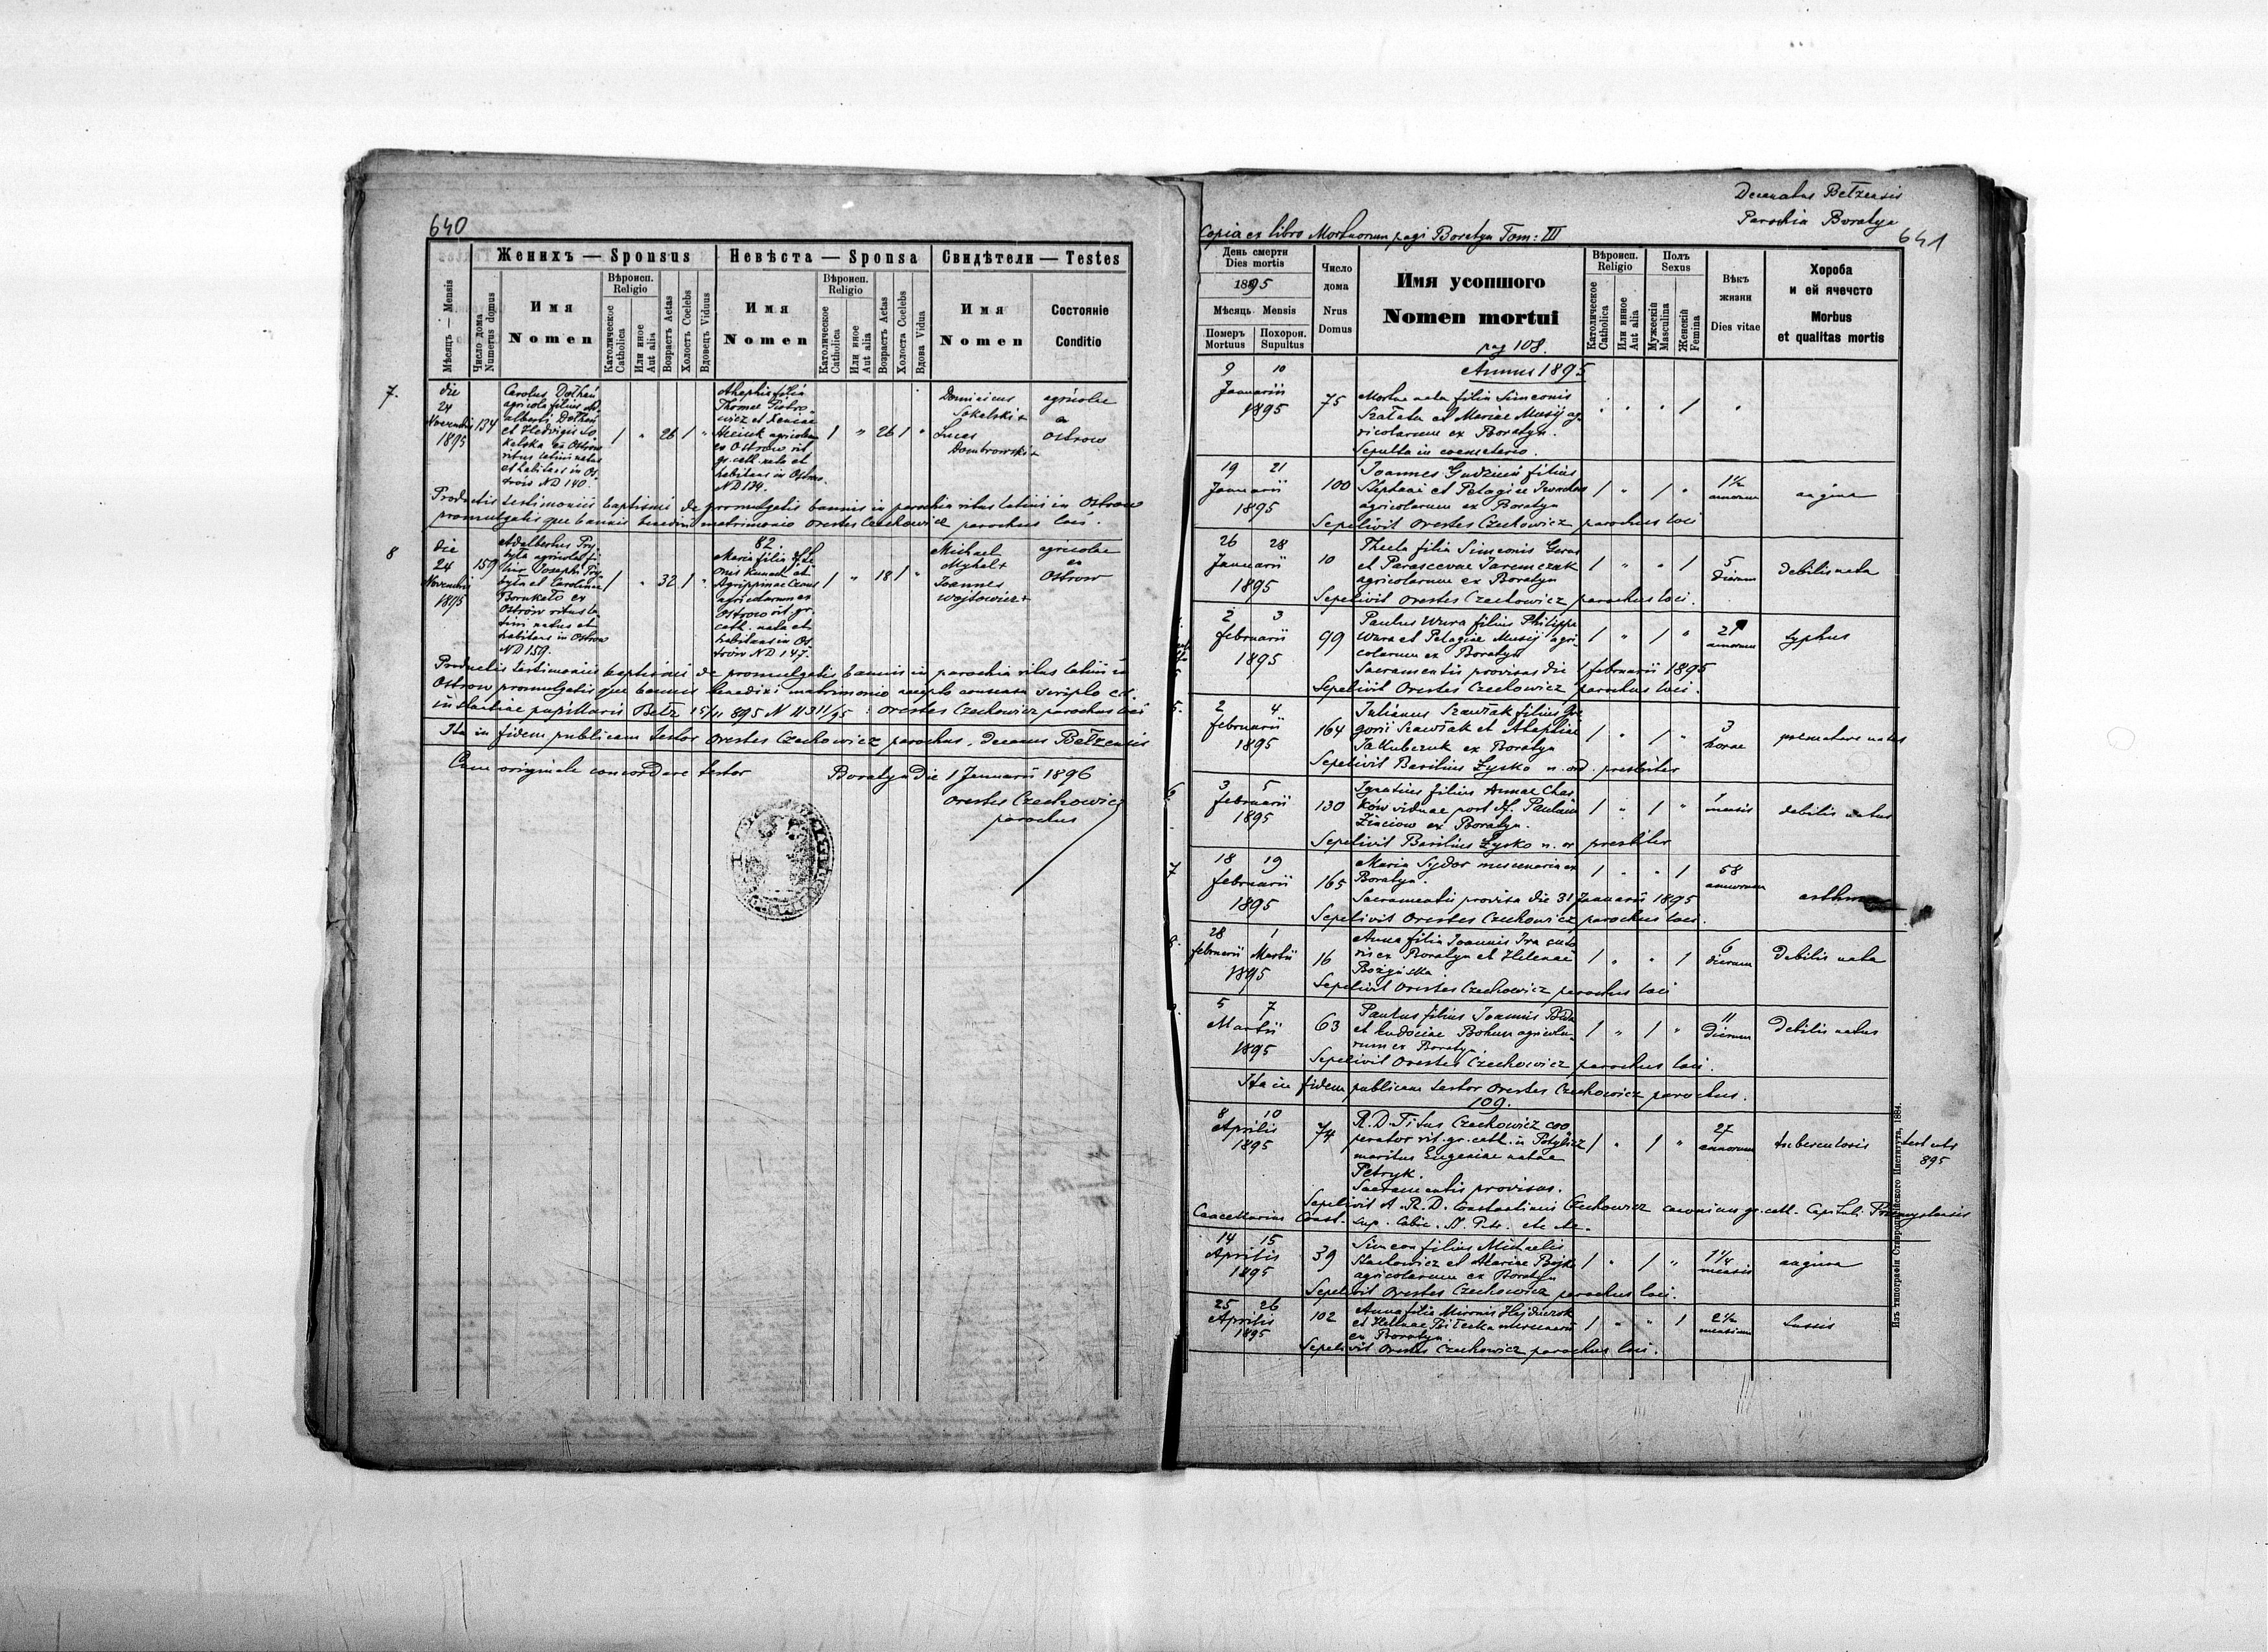 640
Женихъ — Sponsus
Невѣста — Sponsa
Свидѣтели — Testes
Мѣсяцъ — Mensis
Число дома
Numerus domus
Имя
Nomen
Вѣроисп.
Religio
Католическое
Catholica
Или иное
Aut alia
Возрастъ Aetas
Холостъ Coelebs
Вдовецъ Viduus
Имя
Nomen
Вѣроисп.
Religio
Католическое
Catholica
Или иное
Aut alia
Возрастъ Aetas
Холоста Coelebs
Вдова Vidua
Имя
Nomen
Состояніе
Conditio
7.
die
24
Novembris
1895
134
Carolus Dołhań
agricola filius Ad
alberti Dołhań
et Hedvigis So
kelska ex Ostrow
ritus latini natus
et habitans in Os
trów ND 140.
1 " 26 1 "
filia
Thomae Piotro
wicz et
agricolarum
ex Ostrow rit.
gr. cath. nata et
habitans in Ostrow
ND 134.
1 " 26 1 "
Dominicus
Sokalski +
Lucas
Dombrowski +
agricolae
ex
Ostrow
Productis testimoniis baptismi de promulgatis bannis in parochia ritus latini in Ostrow
promulgatis que bannis benedixi matrimonio Orestes Czechowicz parochus loci.
8
die
24
Novembris
1895
159
Adalbertus Pry
była agricola fi
lius Josephi Pry
była et Carolinae
ex
Ostrów ritus la
tini natus et
habitans in Ostrow
ND 159.
1 " 32 1 "
82
Maria filia
et
Agrippinae
agricolarum ex
Ostrow rit. gr.
cath. nata et
habitans in Os
trów ND 147.
1 " 18 1 "
Michael
Myhal +
Joannes
Wojtowicz +
agricolae
ex
Ostrow
Productis testimoniis baptismi de promulgatis bannis in parochia ritus latini in
Ostrow promulgatis que bannis benedixi matrimonio accepto consensu scripto
pupillaris Bełz 15/11 895 N Orestes Czechowicz parochus loci
Ita in fidem publicam testor Orestes Czechowicz parochus, decanus Bełzensis
Cum originale concordare testor Boratyn die 1 Januarii 1896
Orestes Czechowicz
parochus
Decanatus Bełzensis
Parochia Boratyn
641
Copia ex libro Mortuorum pagi Boratyn Tom: III
День смерти
Dies mortis
1895
Мѣсяцъ Mensis
Померъ
Mortuus
Похорон.
Sepultus
Число
дома
Nrus
Domus
Имя усопшого
Nomen mortui
pag 108.
Вѣроисп.
Religio
Католическое
Catholica
Или иное
Aut alia
Полъ
Sexus
Мужескій
Masculina
Женскій
Femina
Вѣкъ
жизни
Dies vitae
Хороба
и ей ячечсто
Morbus
et qualitas mortis
Annus 1895
9 10
Januarii
1895
75
Mortua nata filia Simeonis
Szałata et Mariae Musij ag
ricolarum ex Boratyn.
Sepulta in coemeterio.
1
19 21
Januarii
1895
100
Joannes Gudzień filius
Stephani et Pelagiae
agricolarum ex Boratyn
1 " 1 "
1½
annorum
angina
Sepelivit Orestes Czechowicz parochus loci
26 28
Januarii
1895
10
Thecla filia Simeonis Geras
et Parascevae Jaremczuk
agricolarum ex Boratyn
1 " " 1
5
dierum
debilis nata
Sepelivit Orestes Czechowicz parochus loci.
2 3
februarii
1895
99
Paulus Wura filius Philippi
Wura et Pelagiae Musij agri
colarum ex Boratyn
1 " 1 "
annorum
typhus
Sacramentis provisus die 1 februarii 1895
Sepelivit Orestes Czechowicz parochus loci.
5.
2 4
februarii
1895
164
Julianus Szawłak filius Gre
gorii Szawłak et
Jakubczuk ex Boratyn
1 " 1 "
3
horae
premature natus
Sepelivit Basilius Łysko n. ord. presbiter
6.
3 5
februarii
1895
130
Ignatius filius Annae Chas
ków viduae post df. Paulum
ex Boratyn.
1 " 1 "
1
mensis
debilis natus
Sepelivit Basilius Łysko n. or presbiter
7
18 19
februarii
1895
165
Maria Sydor mercenaria ex
Boratyn.
1 " " 1
58
annorum
asthma
Sacramentis provisa die 31 Januarii 1895
Sepelivit Orestes Czechowicz parochus loci.
8.
28 1
februarii Martii
1895
16
Anna filia Joannis Ira suto
ris ex Boratyn et Helenae
1 " " 1
6
dierum
debilis nata
Sepelivit Orestes Czechowicz parochus loci
5 7
Martii
1895
63
Paulus filius Joannis
et Eudociae Bohun agricola
rum ex Boratyn
1 " 1 "
11
dierum
debilis natus
Sepelivit Orestes Czechowicz parochus loci.
Ita in fidem publicam testor Orestes Czechowicz parochus.
109.
8 10
Aprilis
1895
74
R. D. Titus Czechowicz coo
perator rit. gr. cath. in Potylicz
maritus Eugeniae natae
Petryk.
Sacramentis provisus.
1 " 1 "
27
annorum
tuberculosis
895
Sepelivit A. R. D. Constantinus Czechowicz canonicus gr. cath. Capituli Premysliensis
Cancellarius Const. etc etc.
14 15
Aprilis
1895
39
Simeon filius Michaelis
Stachowicz et Mariae Bojko
agricolarum ex Boratyn
1 " 1 "
1¼
mensis
angina
Sepelivit Orestes Czechowicz parochus loci.
25 26
Aprilis
1895
102
Anna filia Mironis Hajduczok
et Helenae Biłecka mercenarii
ex Boratyn.
1 " " 1
2½
mensium
tussis
Sepelivit Orestes Czechowicz parochus loci.
Изъ типографіи Ставропигійского Института, 1884.